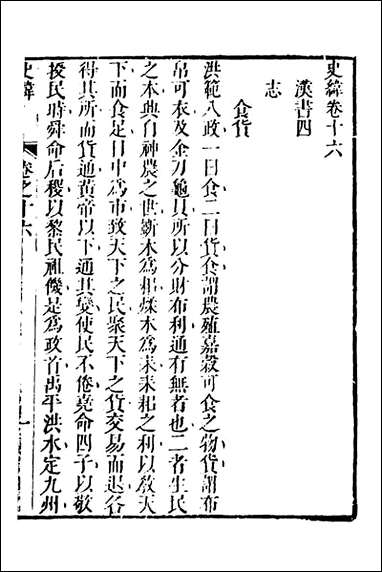 史緯卷十六
漢書四
志
食貨
洪範八政一曰食二曰貨食謂農殖嘉穀可食之物貨謂布
帛可衣及金刀龜貝所以分財布利通有無者也二者生民
之本興自神農之世斲木為耜煣木為耒耒耜之利以敎天
下而食足日中為市致天下之民聚天下之貨交易而退各
得其所而貨通黃帝以下通其變使民不倦堯命四子以敬
授民時舜命后稷以黎民祖饑是為政首禹平洪水定九州
史緯
卷之十六